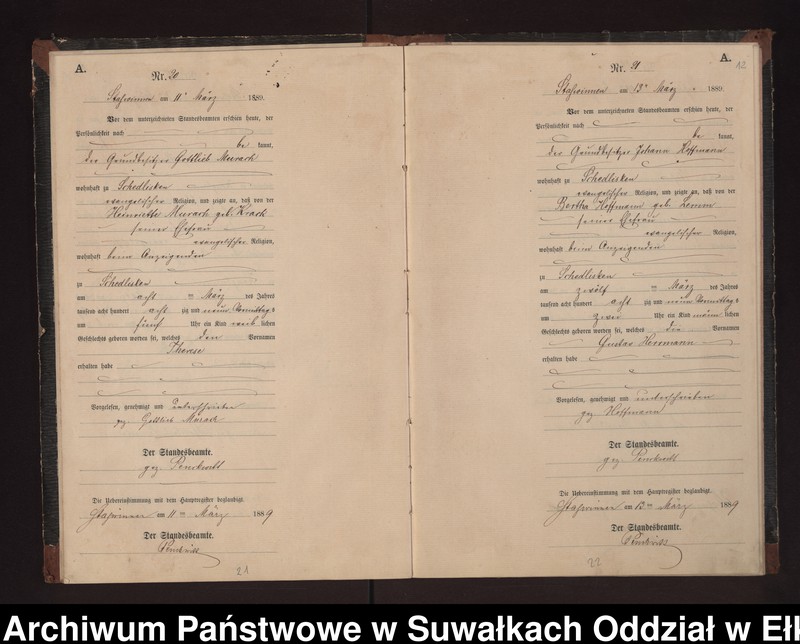 A.
Nr. 20
Stasswinnen am 11ten März 1889.
Vor dem unterzeichneten Standesbeamten erschien heute, der
Persönlichkeit nach
be kannt,
der Grundbesitzer Gottlieb Murach
wohnhaft zu Schedlisken
evangelischer Religion, und zeigte an, daß von der
Heinriette Murach geb.
seiner Ehefrau
evangelischer Religion,
wohnhaft beim Anzeigenden
zu Schedlisken
am acht ten März des Jahres
tausend acht hundert acht zig und neun Vormittags
um fünf Uhr ein Kind weib lichen
Geschlechts geboren worden sei, welches den Vornamen
Therese
erhalten habe
Vorgelesen, genehmigt und unterschrieben
gez. Gottlieb Murach
Der Standesbeamte.
gez.
Die Uebereinstimmung mit dem Hauptregister beglaubigt.
am 11 ten März 1889
Der Standesbeamte.
21
A.
12
Nr. 21
Stasswinnen am 13ten März 1889.
Vor dem unterzeichneten Standesbeamten erschien heute, der
Persönlichkeit nach
be kannt,
der Grundbesitzer Johann Hoffmann
wohnhaft zu Schedlisken
evangelischer Religion, und zeigte an, daß von der
Bertha Hoffmann geb.
seiner Ehefrau
evangelischer Religion,
wohnhaft beim Anzeigenden
zu Schedlisken
am zwölf ten März des Jahres
tausend acht hundert acht zig und neun Vormittags
um zwei Uhr ein Kind männ lichen
Geschlechts geboren worden sei, welches die Vornamen
Gustav Herrmann
erhalten habe
Vorgelesen, genehmigt und unterschrieben
gez. Hoffmann
Der Standesbeamte.
gez.
Die Uebereinstimmung mit dem Hauptregister beglaubigt.
am 13 ten März 1889
Der Standesbeamte.
22
Archiwum Państwowe w Suwałkach Oddział w Eł